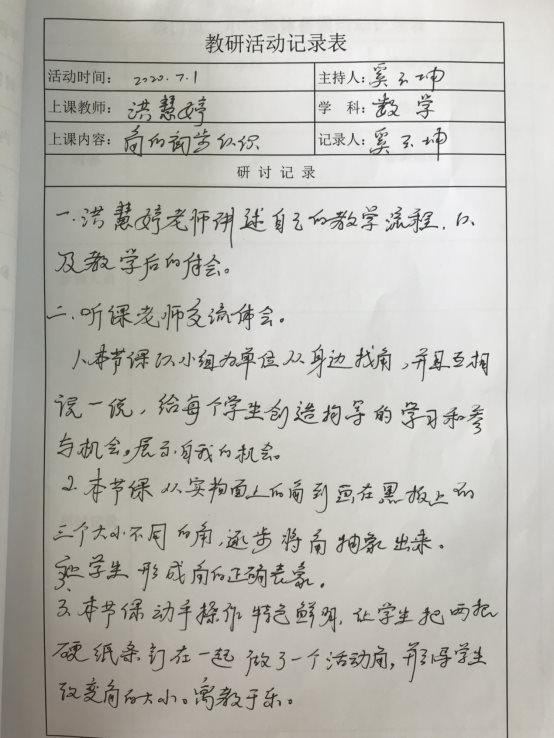 教研活动记录表
活动时间: 2020.7.1 主持人: 奚
上课教师: 洪慧婷 学 科: 数学
上课内容: 角的初步认识 记录人: 奚
研 讨 记 录
一.洪慧婷老师讲述自己的教学流程.以
及教学后的体会。
二.听课老师交流体会。
1、本节课以小组为单位从身边找角,并且互相
说一说,给每个学生创造均等的学习和参
与机会。展示自我的机会。
2.本节课从实物面上的角到画在黑板上的
三个大小不同的角,逐步将角抽象出来。
学生形成角的正确表象。
3.本节课动手操作特色鲜明,让学生把两根
硬纸条钉在一起做了一个活动角,并引导学生
改变角的大小。寓教于乐。